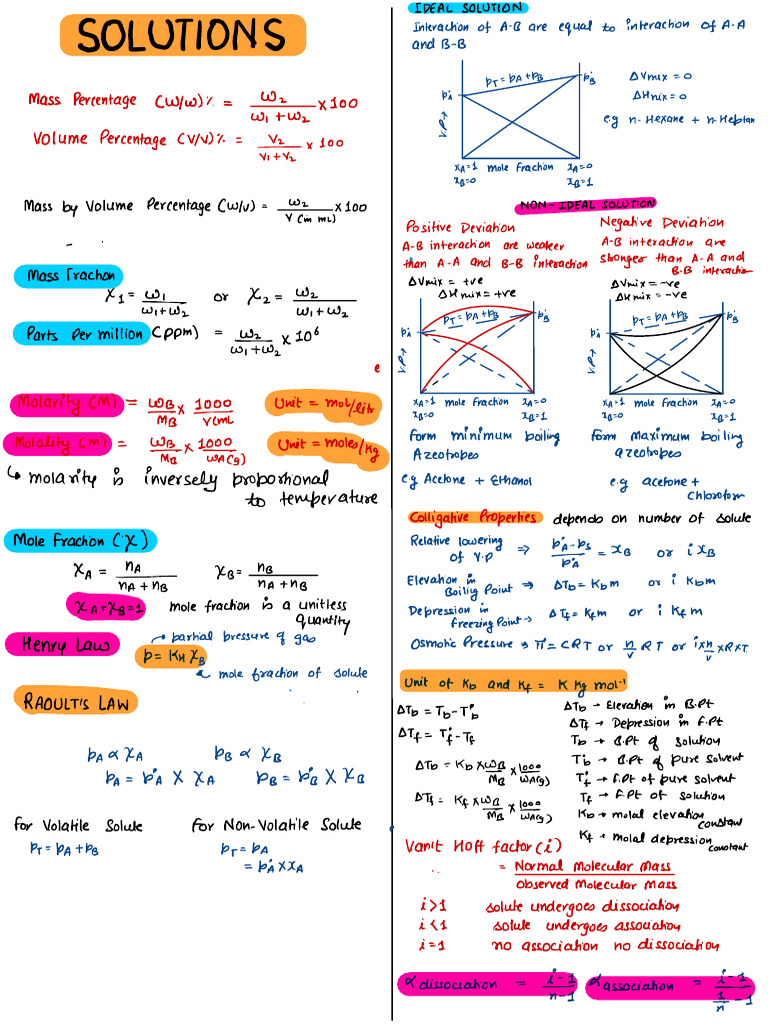 SOLUTIONS
Mass Percentage (W/W)% = ω2/(ω1+ω2) × 100
Volume Percentage (V/V)% = V2/(V1+V2) × 100
Mass by Volume Percentage (W/V) = ω2/V (in mL) × 100
Mass Fraction
χ1 = ω1/(ω1+ω2) or χ2 = ω2/(ω1+ω2)
Parts Per million (ppm) = ω2/(ω1+ω2) × 10⁶
e
Molarity (M) = ωB/MB × 1000/V(mL Unit = mol/litr
Molality (m) = ωB/MB × 1000/ωA(g) Unit = moles/Kg
↳ molarity is inversely proportional
to temperature
Mole Fraction (χ)
χA = nA/(nA+nB) χB = nB/(nA+nB)
χA+χB=1 mole fraction is a unitless
quantity
Henry Law
→ partial pressure of gas
p = KH χB
mole fraction of solute
RAOULT'S LAW
pA ∝ χA pB ∝ χB
pA = p°A × χA pB = p°B × χB
for Volatile Solute
pT = pA + pB
for Non-Volatile Solute
pT = pA
= p°A × xA
IDEAL SOLUTION
Interaction of A-B are equal to interaction of A-A
and B-B
pT = pA + pB
p°A
p°B
V.P→
xA=1 mole fraction xA=0
xB=0 xB=1
ΔVmix = 0
ΔHmix = 0
e.g n-Hexane + n-Heptan
NON-IDEAL SOLUTION
Positive Deviation
A-B interaction are weaker
than A-A and B-B interaction
ΔVmix = +ve
ΔHmix = +ve
pT = pA + pB
p°A
p°B
V.P→
xA=1 mole fraction xA=0
xB=0 xB=1
form minimum boiling
Azeotropes
e.g Acetone + Ethanol
Negative Deviation
A-B interaction are
stronger than A-A and
B-B interaction
ΔVmix = -ve
ΔHmix = -ve
pT = pA + pB
p°A
p°B
V.P→
xA=1 mole fraction xA=0
xB=0 xB=1
form maximum boiling
azeotropes
e.g acetone +
Chloroform
Colligative Properties depends on number of solute
Relative lowering
of V.P ⇒ (p°A-ps)/p°A = xB or i xB
Elevation in
Boiling Point → ΔTb = Kb m or i Kb m
Depression in
freezing Point → ΔTf = Kf m or i Kf m
Osmotic Pressure → π = CRT or n/V RT or i×n/V × R×T
Unit of Kb and Kf = K Kg mol⁻¹
ΔTb = Tb - T°b
ΔTf = T°f - Tf
ΔTb = Kb × ωB/MB × 1000/ωA(g)
ΔTf = Kf × ωB/MB × 1000/ωA(g)
ΔTb → Elevation in B.Pt
ΔTf → Depression in F.Pt
Tb → B.Pt of solution
T°b → B.Pt of pure solvent
T°f → f.Pt of pure solvent
Tf → f.Pt of solution
Kb → molal elevation
constant
Kf → molal depression
constant
Vanit Hoff factor (i)
= Normal Molecular Mass
Observed Molecular Mass
i>1 solute undergoes dissociation
i<1 solute undergoes association
i=1 no association no dissociation
α dissociation = (i-1)/(n-1)
α association = (i-1)/(1/n - 1)